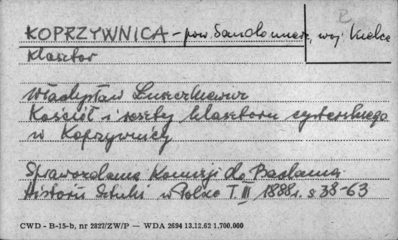 KOPRZYWNICA - pow. Sandomierz, woj. Kielce
klasztor
Władysław Łuszczkiewicz
Kościół i reszty klasztoru cysterskiego
w Koprzywnicy
Sprawozdania Komisji do Badania
Historii Sztuki w Polsce T. III 1888r. s 38-63
CWD - B-15-b, nr 2827/ZW/P — WDA 2694 13.12.62 1.700.000